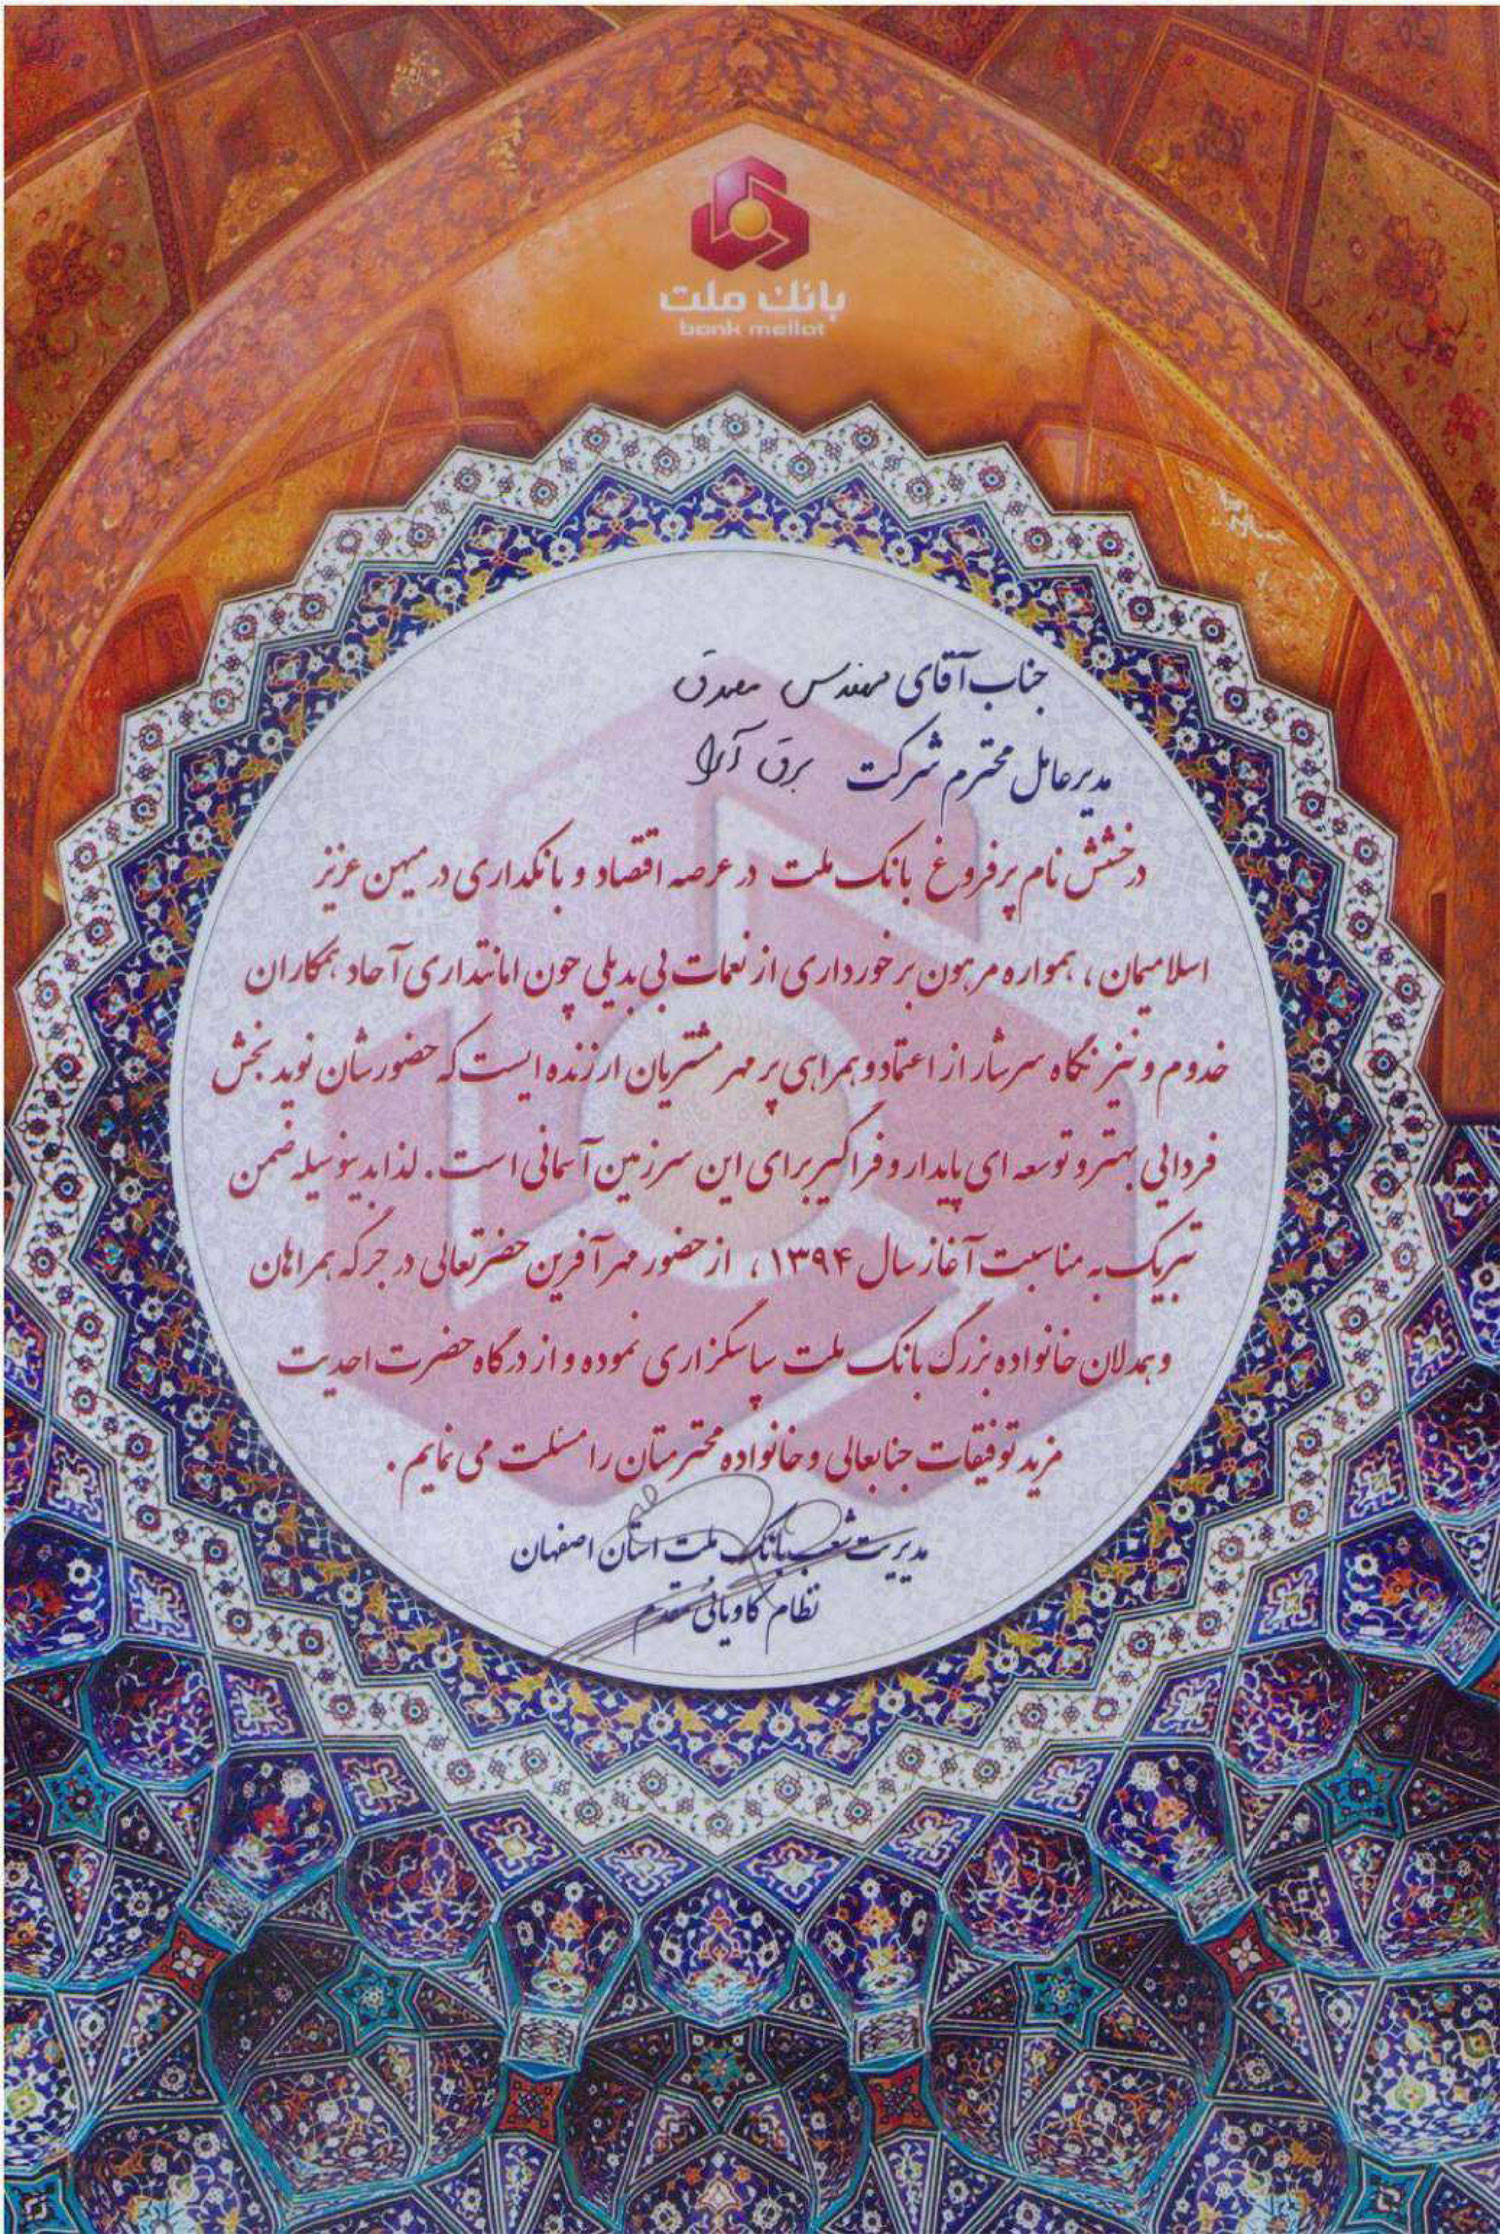 بانک ملت
bank mellat
جناب آقای مهندس مصدق
مدیرعامل محترم شرکت برق آرا
درخشش نام پرفروغ بانک ملت در عرصه اقتصاد و بانکداری در میهن عزیز
اسلامیمان ، همواره مرهون برخورداری از نعمات بی بدیلی چون امانتداری آحاد همکاران
خدوم و نیز نگاه سرشار از اعتماد و همراهی پر مهر مشتریان ارزنده ایست که حضورشان نوید بخش
فردایی بهتر و توسعه ای پایدار و فراگیر برای این سرزمین آسمانی است . لذا بدینوسیله ضمن
تبریک به مناسبت آغاز سال ۱۳۹۴ ، از حضور مهر آفرین حضرتعالی در جرگه همراهان
و همدلان خانواده بزرگ بانک ملت سپاسگزاری نموده و از درگاه حضرت احدیت
مزید توفیقات جنابعالی و خانواده محترمتان را مسئلت می نمایم .
مدیریت شعب بانک ملت استان اصفهان
نظام کاویانی مقدم